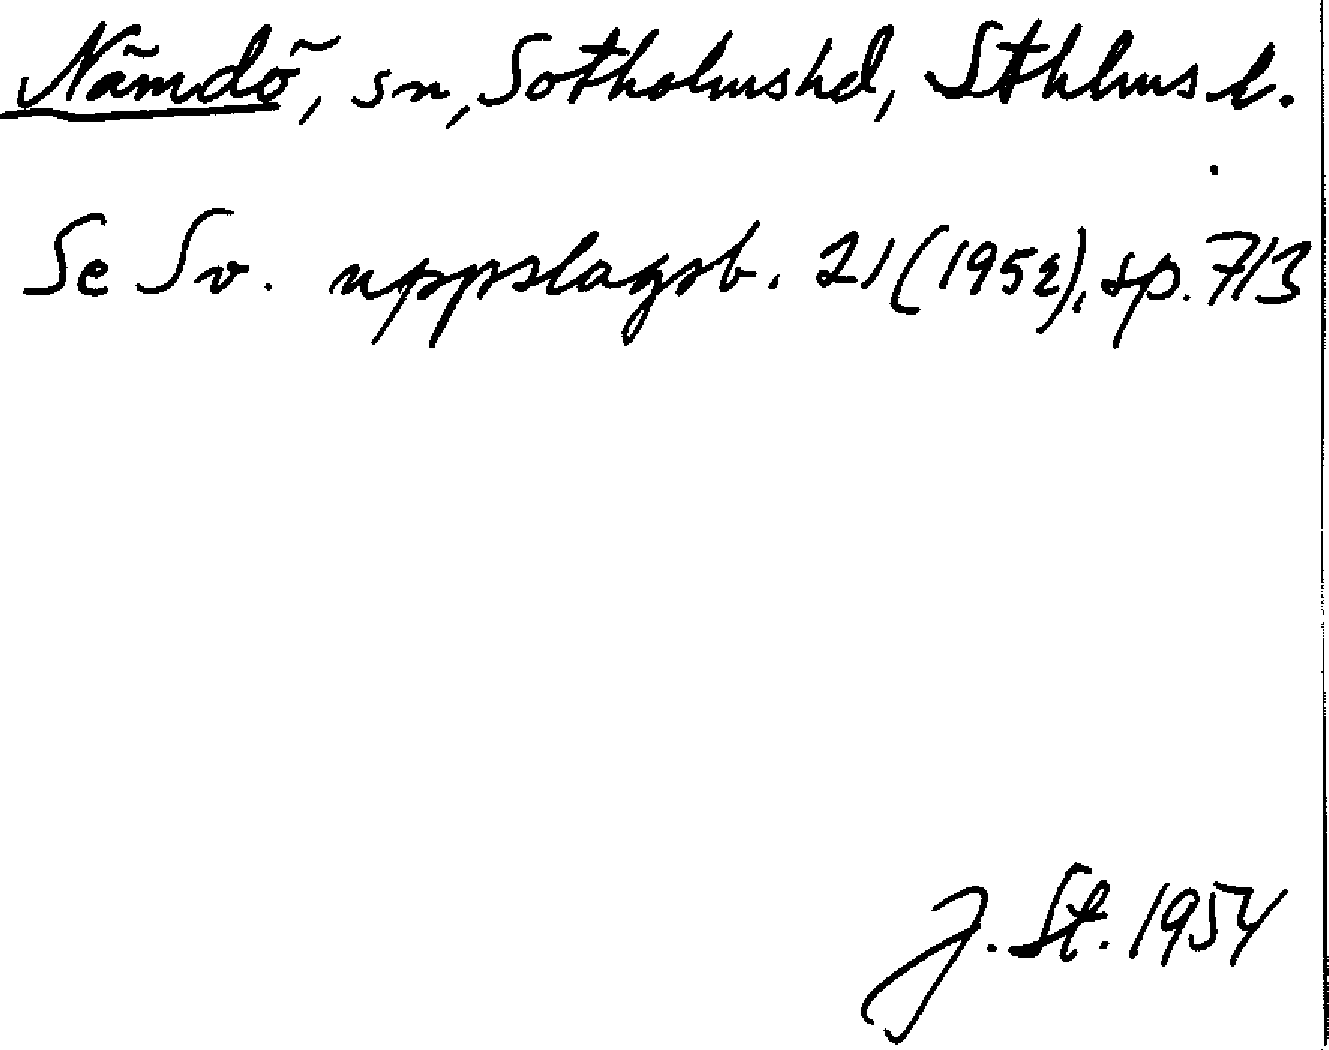 Nämdö, sn, Sotholms hd, Sthlms l.
Se Sv. uppslagsb. 21 (1952), sp. 713
J. St. 1954